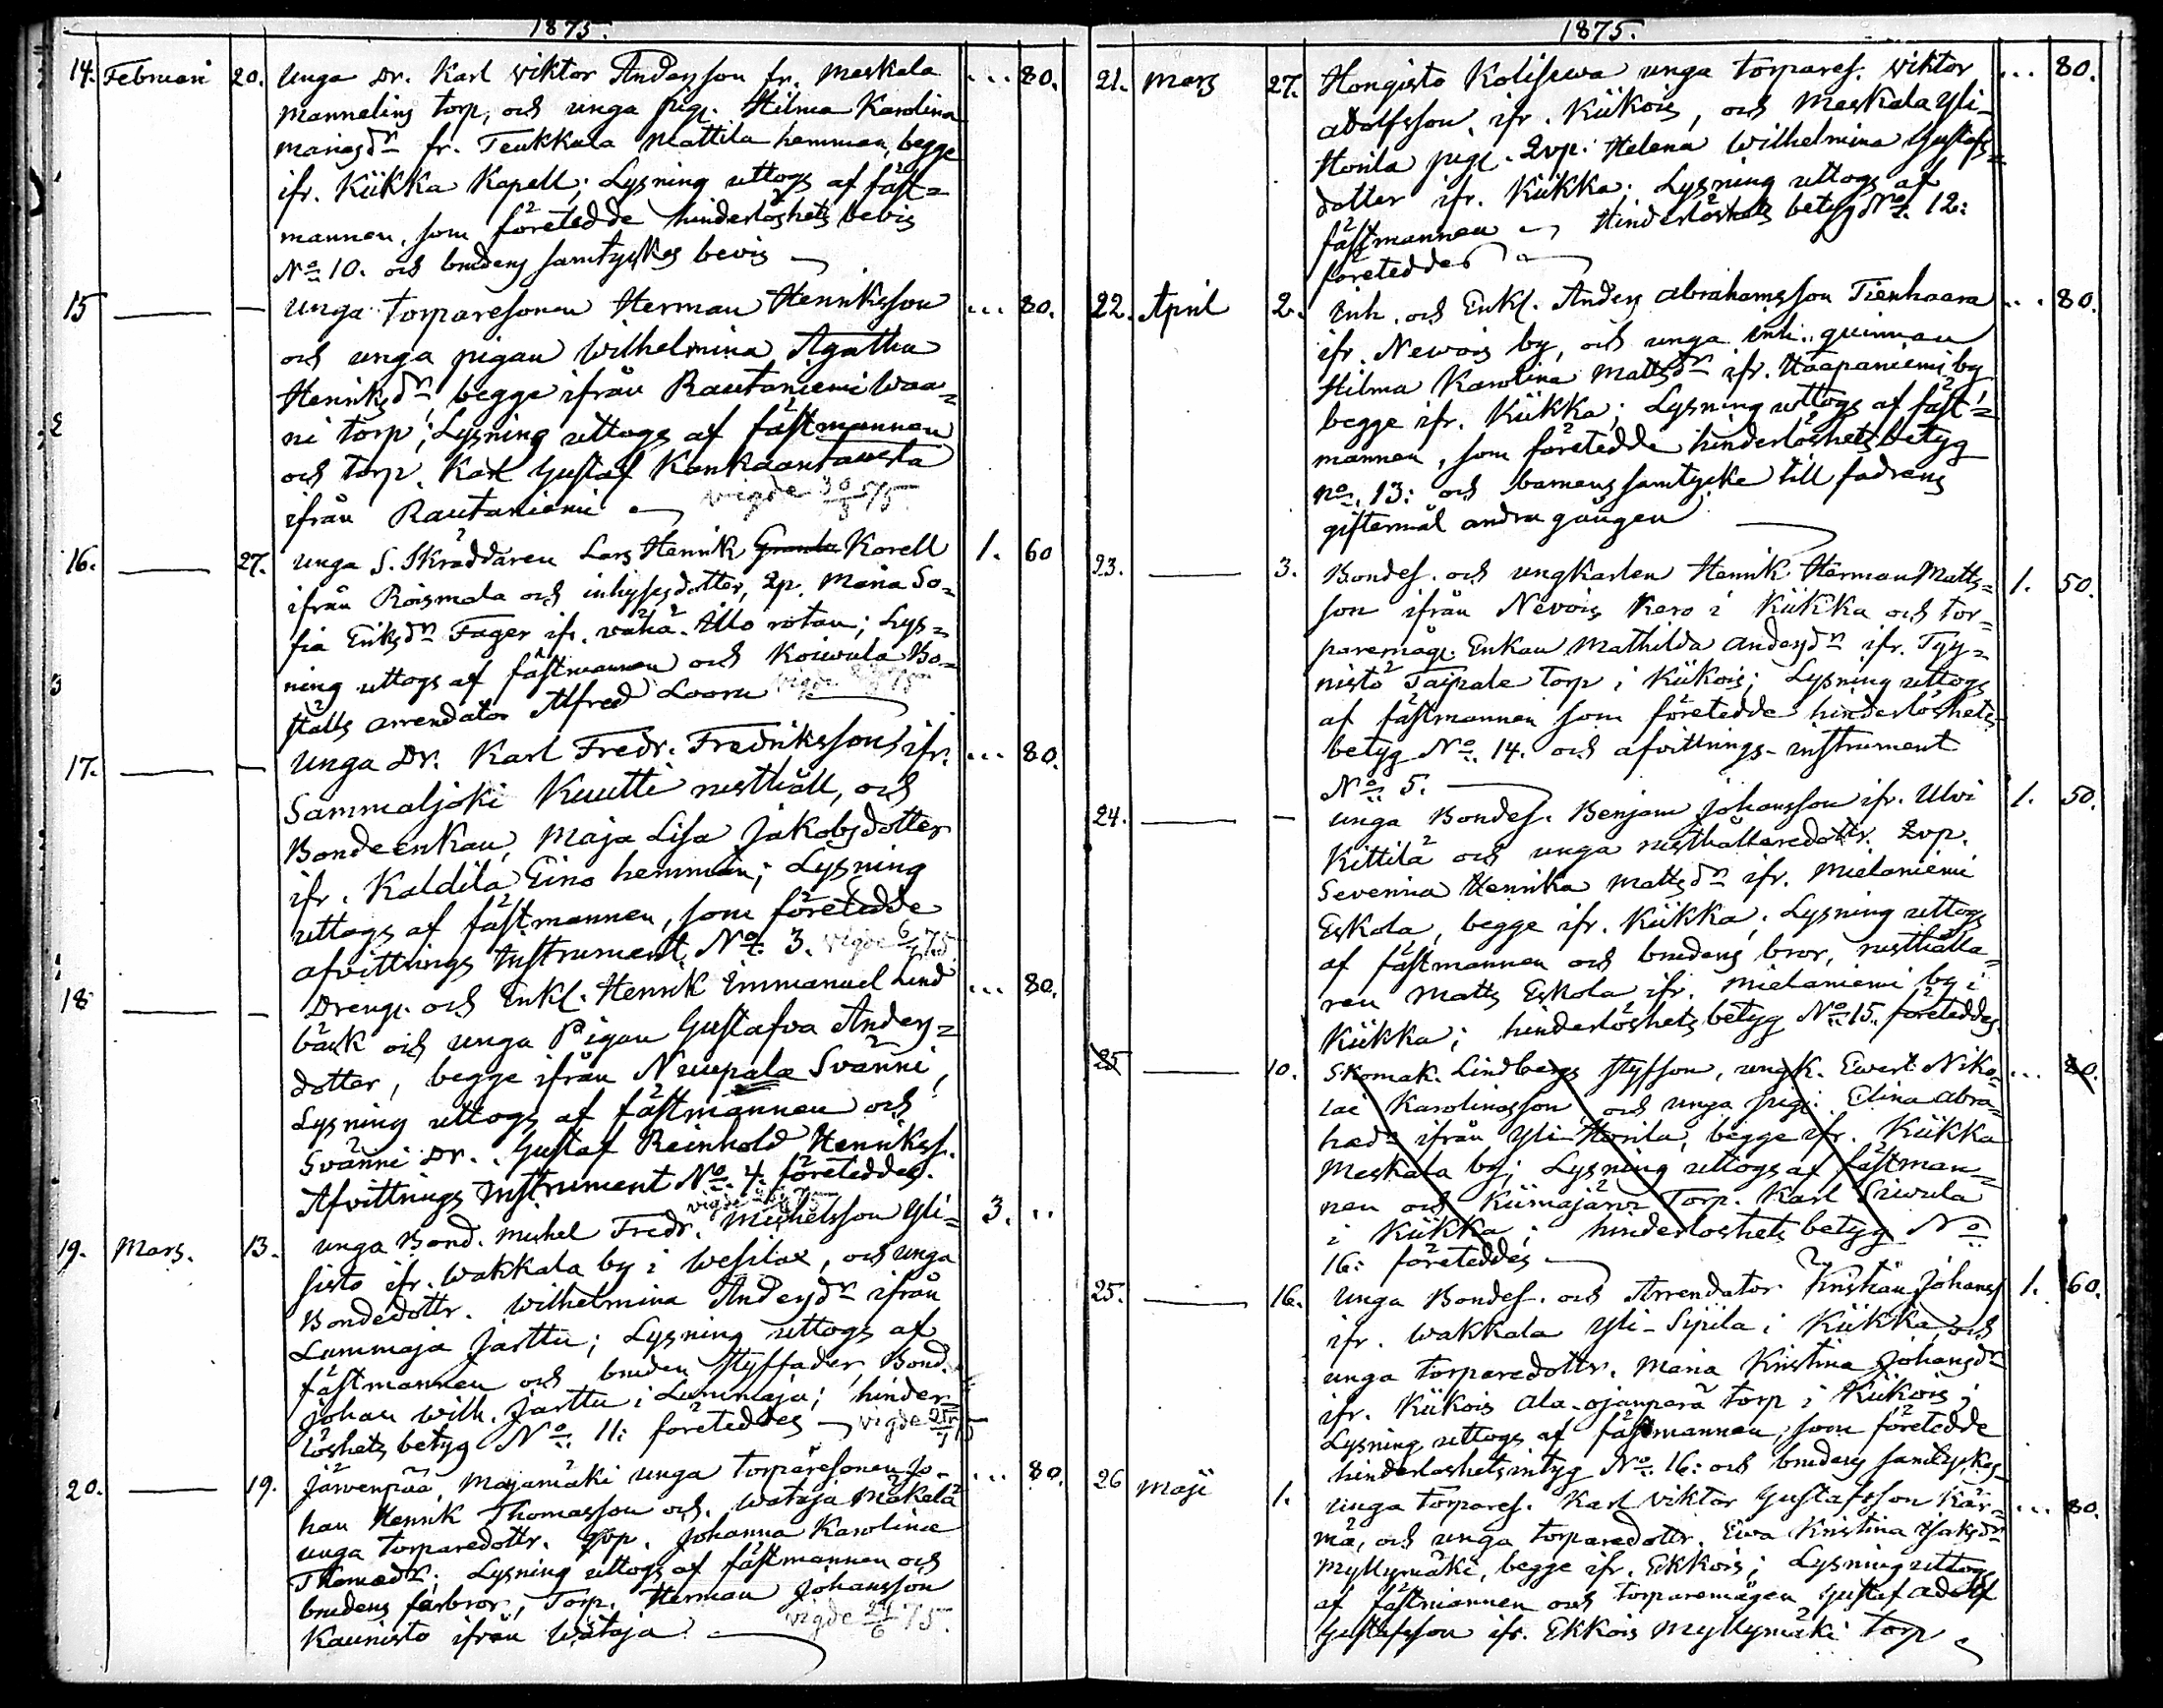 1875.
14. Februari 20. Unga Dr. Karl Viktor Andersson fr. Meskala ... 80.
Mannelins torp, och unga pig. Hilma Karolina
Mariaedr fr. Teukkala Mattila hemman, begge
ifr. Kiikka Kapell; Lysning uttogs af fäst=
mannen, som företedde hinderlöshets bevis
No 10. och brudens samtyckes bevis
15 — — Unga torparesonen Herman Henriksson ... 80.
och unga pigan Wilhelmina Agatha
Henriksdr begge ifrån Rautaniemi Waa=
ni torp; Lysning uttogs af fästmannen
och torp. Karl Gustaf Kankaantausta
ifrån Rautaniemi vigde 30/5 75
16. — 27. Unga S. Skräddaren Lars Henrik Korell 1. 60
ifrån Roismala och inhysesdotter, Qp. Maria So=
fia Eriksdr Fager ifr. vähä-Illo rotan; Lys=
ning uttogs af fästmannen och Koivula Bo=
ställs arrendator Alfred Loora vigde
17. — — Unga Dr. Karl Fredr. Fredriksson ifr. ... 80.
Sammaljoki Kuutti rusthåll, och
Bondeenkan, Maja Lisa Jakobsdotter
ifr. Kaldila Eino hemman; Lysning
uttogs af fästmannen, som företedde
afvittrings Instrument No 3. vigde 75
18 — — Dreng. och Enkl. Henrik Emmanuel Lind ... 80.
bäck och unga Pigan Gustafva Anders=
dotter, begge ifrån Nuupala Svänni,
Lysning uttogs af fästmannen och
Svänni Dr. Gustaf Reinhold Henrikss.
Afvittrings Instrument No 4. företeddes.
vigde
19. Mars. 13. Unga Bond. Michel Fredr. Michelsson Yli= 3. ..
sisto ifr. Wakkala by i Wesilax, och unga
Bondedottr. Wilhelmina Andersdr ifrån
Lummaja Jarttu; Lysning uttogs af
fästmannen och bruden styffader, Bond.
Johan Wilh. Jarttu i Lummaja; hinder=
löshets betyg No 11: företeddes vigde
20. — 19. Järvenpää, Majamäki unga torparesonen Jo- ... 80.
han Henrik Thomasson och Wataja Mäkelä
unga torparedottr. Qvp. Johanna Karolina
Thomaedr; Lysning uttogs af fästmannen och
brudens farbror, Torp. Herman Johansson
Kaunisto ifrån Wataja vigde 24/6 75.
1875.
21. Mars 27. Hongisto Kolisewa unga torpares. Viktor ... 80.
Adolfsson, ifr. Kiikois, och Meskala Yli-
Horila pig. Qvp. Helena Wilhelmina Gustafs=
dotter ifr. Kiikka; Lysning uttogs af
fästmannen Hinderlöshets betyg No 12:
företeddes
22. April 2. Inh. och Enkl. Anders Abrahamsson Tienhaara ... 80.
ifr. Newois by, och unga inh. quinnan
Hilma Karolina Mattsdr ifr. Haapaniemi by
begge ifr. Kiikka; Lysning uttogs af fäst=
mannen, som företedde hinderlöshets betyg
No. 13: och barnens samtycke till fadrens
giftermål andra gången
23. — 3. Bondes. och ungkarlen Henrik Herman Matts= 1. 50.
son ifrån Nevois Kero i Kiikka och tor=
paremåg. Enkan Mathilda Andersdr ifr. Tyy=
nistö Taipale torp i Kiikois; Lysning uttogs
af fästmannen som företedde hinderlöshets
betyg No 14. och afvittrings-instrument
No 5.
24. — — Unga Bondes. Benjam Johansson ifr. Ulvi 1. 50.
Kittilä och unga rusthållaredottr. Qvp.
Severina Henrika Mattsdr ifr. Mielaniemi
Eskola, begge ifr. Kiikka, Lysning uttogs
af fästmannen och brudens bror, rusthålla=
ren Matts Eskola ifr. Mielaniemi by i
Kiikka; hinderlöshets betyg No 15. företeddes
25 — 10. Skomak. Lindbergs styfson, ungk. Ewert Niko= ... 80.
lai Karolinasson och unga pig. Elina Abra=
haedr ifrån Yli-Horila, begge ifr. Kiikka
Meskala by; Lysning uttogs af fästman=
nen och Kiimajärvi Torp. Karl Siwula
i Kiikka; hinderloshets betyg No
16: företeddes
25. — 16. Unga Bondes. och Arrendator Kristian Johans 1. 60.
ifr. Wakkala Yli-Sipilä i Kiikka och
unga torparedottr. Maria Kristina Johansdr
ifr. Kiikois Ala-ojanperä torp i Kiikois;
Lysning uttogs af fästmannen, som företedde
hinderloshetsintyg No 16: och brudens samtyckes
26 Maji 1. Unga torpares. Karl Viktor Gustafsson Kär= ... 80.
mä, och unga torparedottr. Eva Kristina Isaksdr
Myllymäki, begge ifr. Ekkois; Lysning uttogs
af fästmannen och torparemågen Gustaf Adolf
Gustafsson ifr. Ekkois Myllymäki torp